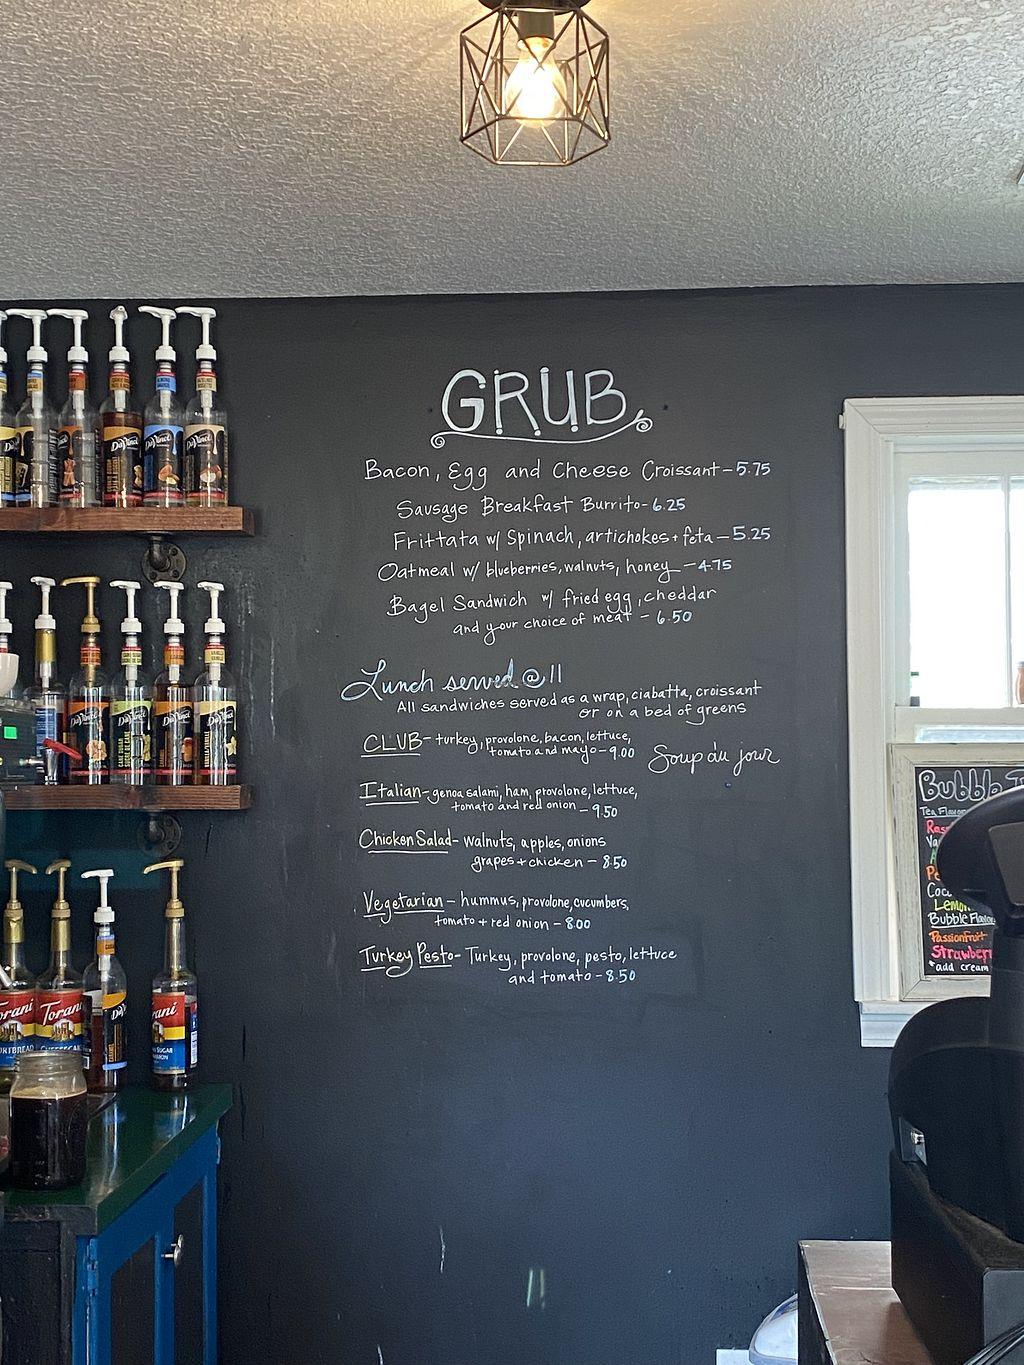 GRUB
Bacon, Egg and Cheese Croissant - 5.75
Sausage Breakfast Burrito - 6.25
Frittata w/ Spinach, artichokes + feta - 5.25
Oatmeal w/ blueberries, walnuts, honey - 4.75
Bagel Sandwich w/ fried egg, cheddar
and your choice of meat - 6.50
Lunch served @ 11
All sandwiches served as a wrap, ciabatta, croissant
or on a bed of greens
CLUB - turkey, provolone, bacon, lettuce,
tomato and mayo - 9.00
Soup du jour
Italian - genoa salami, ham, provolone, lettuce,
tomato and red onion - 9.50
Chicken Salad - walnuts, apples, onions
grapes + chicken - 8.50
Vegetarian - hummus, provolone, cucumbers,
tomato + red onion - 8.00
Turkey Pesto - Turkey, provolone, pesto, lettuce
and tomato - 8.50
DaVinci
DaVinci
DaVinci
DaVinci
DaVinci
DaVinci
DaVinci
Torani
Torani
Torani
Bubble
Tea
Bubble
Passionfruit
*add cream